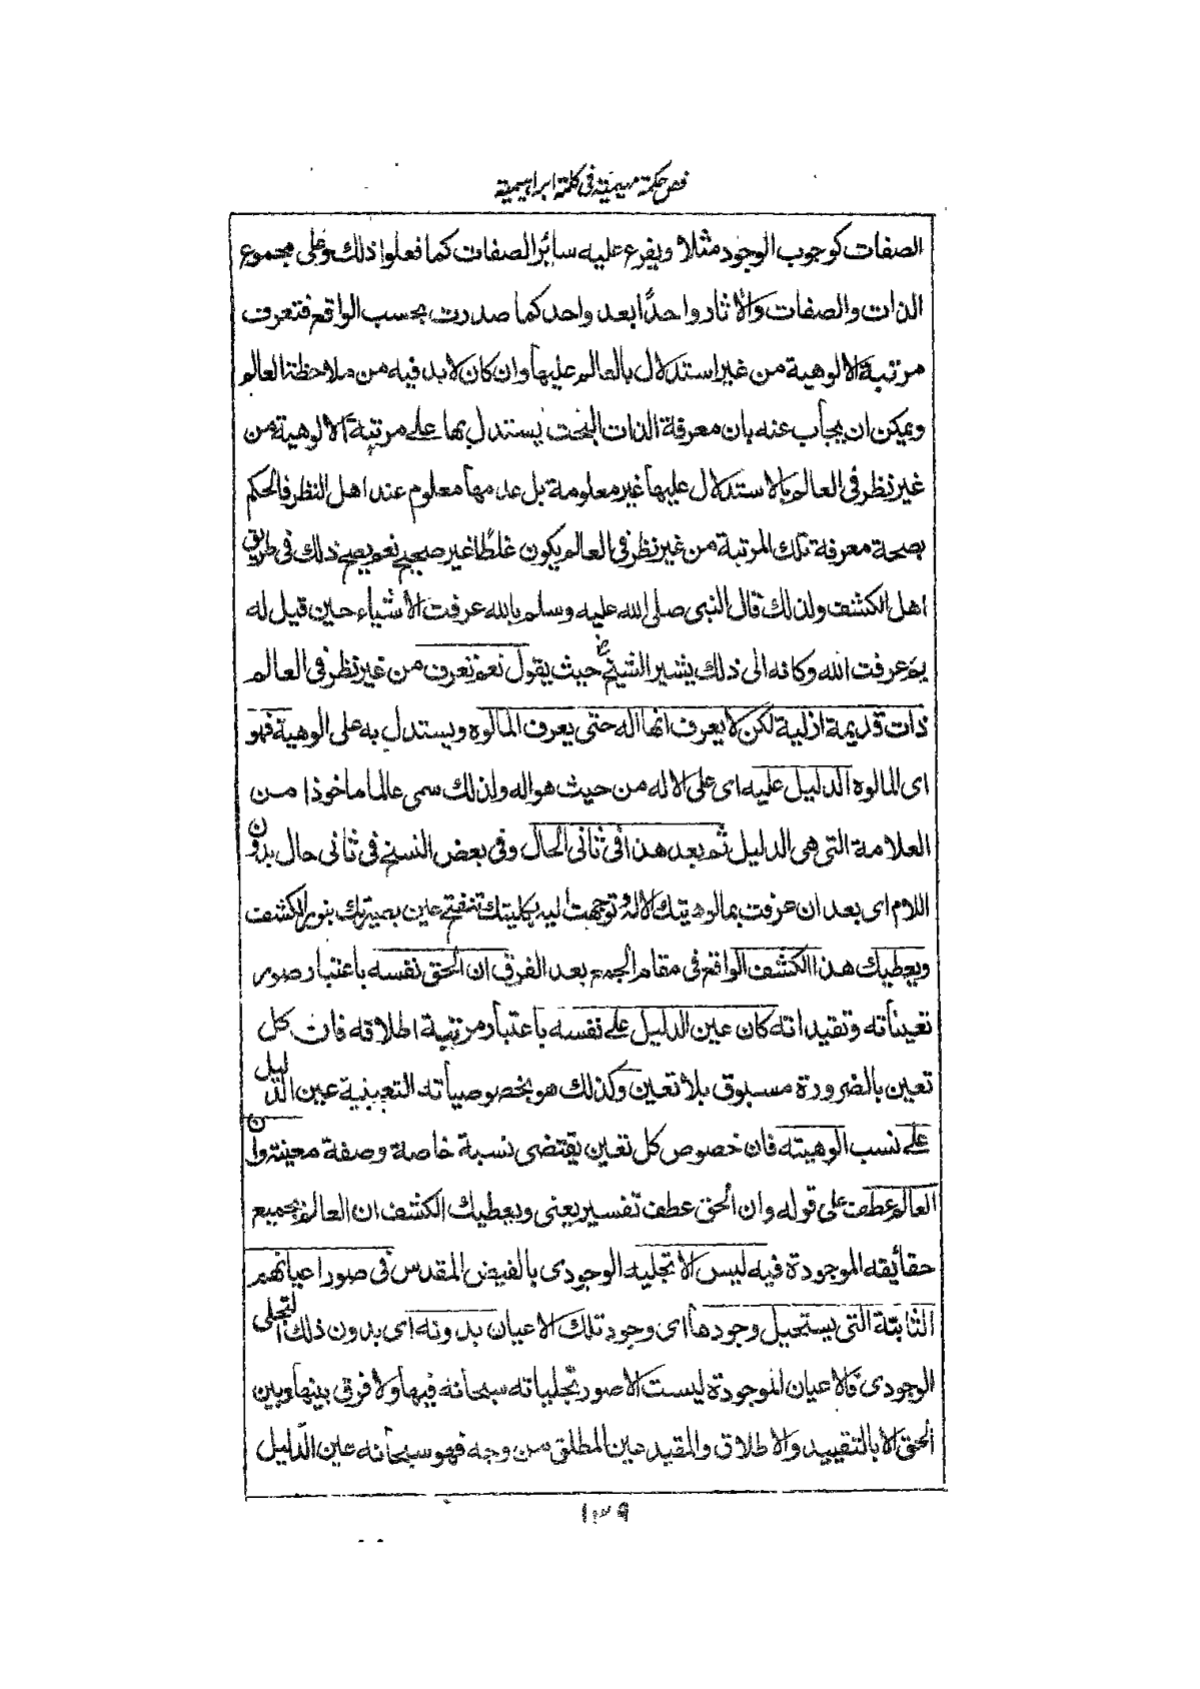 فص حكمة مهيمية فى كلمة ابراهيمية
الصفات كوجوب الوجود مثلا ويفرع عليه سائر الصفات كما فعلوا ذلك وعلى مجموع
الذات والصفات والاثار واحدًا بعد واحد كما صدرت بحسب الواقع فتعرف
مرتبة الالوهية من غير استدلال بالعالم عليها وان كان لابد فيه من ملاحظة العالم
ويمكن ان يجاب عنه بان معرفة الذات البحت يستدل بها على مرتبة الالوهية من
غير نظر فى العالم بالاستدلال عليها غير معلومة بل عدمها معلوم عند اهل النظر فالحكم
بصحة معرفة تلك المرتبة من غير نظر فى العالم يكون غلطًا غير صحيح نعم يصح ذلك فى طريق
اهل الكشف ولذلك قال النبى صلى الله عليه وسلم بالله عرفت الاشياء حين قيل له
بم عرفت الله وكانه الى ذلك يشير الشيخ رض حيث يقول نعم تعرف من غير نظر فى العالم
ذات قديمة ازلية لكن لا يعرف انها اله حتى يعرف المالوه ويستدل به على الوهية فهو
اى المالوه الدليل عليه اى على الاله من حيث هو اله ولذلك سمى عالما ماخوذا من
العلامة التى هى الدليل ثم بعد هذا فى ثانى الحال وفى بعض النسخ فى ثانى حال بدون
اللام اى بعد ان عرفت بمالوهيتك الاله وتوجهت اليه بكليتك تنفتح عين بصيرتك بنور الكشف
ويعطيك هذا الكشف الواقع فى مقام الجمع بعد الفرق ان الحق نفسه باعتبار صور
تعيناته وتقيداته كان عين الدليل على نفسه باعتبار مرتبة اطلاقه فان كل
تعين بالضرورة مسبوق بلا تعين وكذلك هو بخصوصياته التعينية عين الدليل
على نسب الوهيته فان خصوص كل تعين يقتضى نسبة خاصة وصفة معينة وان
العالم عطف على قوله وان الحق عطف تفسير يعنى ويعطيك الكشف ان العالم بجميع
حقائقه الموجودة فيه ليس الا تجليه الوجودى بالفيض المقدس فى صور اعيانهم
الثابتة التى يستحيل وجودها اى وجود تلك الاعيان بدونه اى بدون ذلك التجلى
الوجودى فالاعيان الموجودة ليست الا صور تجلياته سبحانه فيها ولا فرق بينها وبين
الحق الا بالتقييد والاطلاق والمقيد عين المطلق من وجه فهو سبحانه عين الدليل
١٣٩